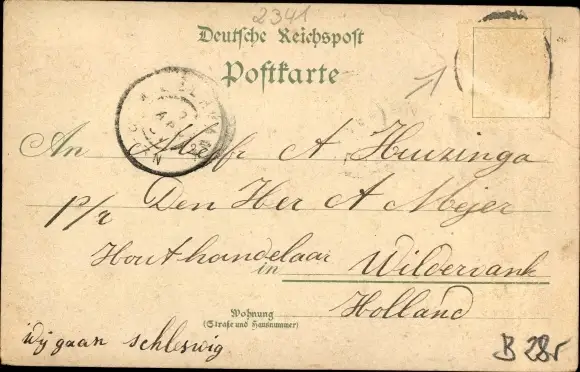 2341
Deutsche Reichspost
Postkarte
An Mejfr A Huizinga
p/r Den Her A Mejer
Houthandelaar
in Wildervank
Holland
Wohnung
(Straße und Hausnummer)
wij gaan schleswig
B 28r